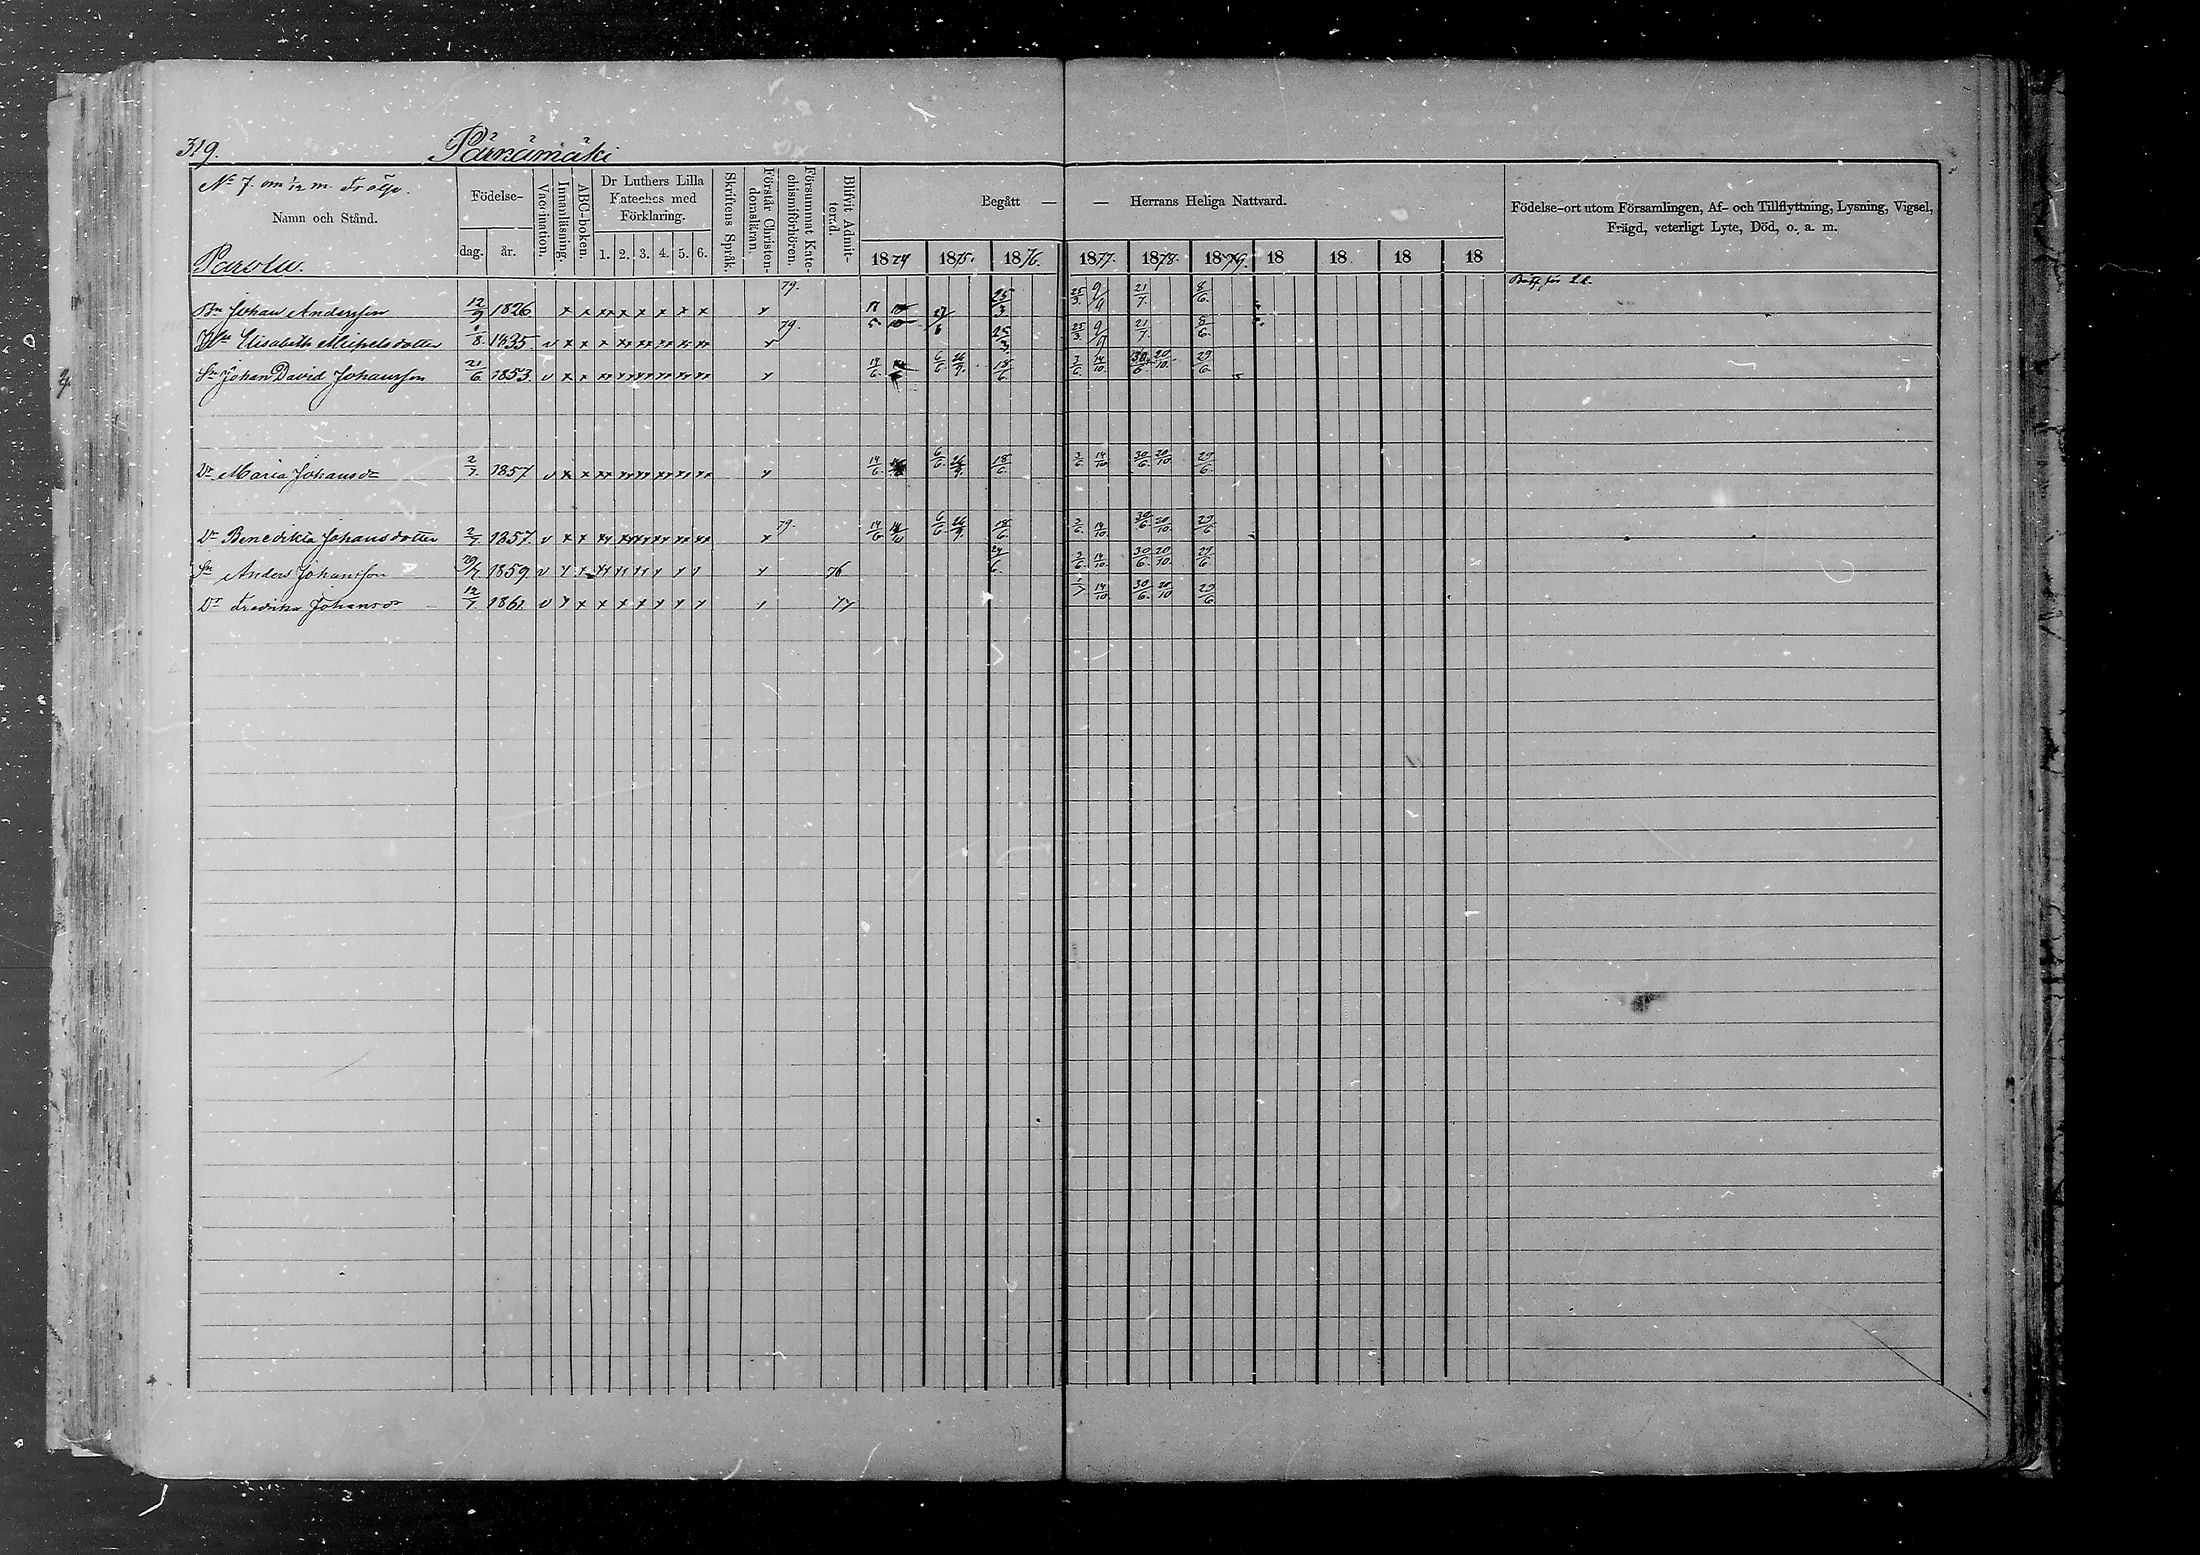 319. Pärnämäki
No 7. om 1/12 m. Frälse.
Namn och Stånd.
Födelse-
dag. år.
Vaccination.
Innanläsning.
ABC-boken.
Dr Luthers Lilla
Kateches med
Förklaring.
1. 2. 3. 4. 5. 6.
Skriftens Språk.
Förstår Christen-
domsläran.
Försummat Kate-
chismiförhören.
Blifvit Admit-
terad.
Begått — — Herrans Heliga Nattvard.
1874 1875. 1876. 1877. 1878. 1879. 18 18 18 18
Födelse-ort utom Församlingen, Af- och Tillflyttning, Lysning, Vigsel,
Frägd, veterligt Lyte, Död, o. a. m.
Parola.
Bn Johan Andersson 12/9 1826 x x x x x x x x x 79. 25/3 25/3. 9/9 21/7. 8/6.
Hu Elisabeth Michelsdotter 1/8 1835 v x x 79. 25/3. 25/3 9/9 21/7 8/6.
Sn Johan David Johansson 21/6 1853. v x x 14/6. 6/6. 26/9. 18/6. 3/6. 14/10. 30/6 20/10. 29/6.
Dr Maria Johansdr 2/7. 1857 v x x 14/6. 6/6. 26/9. 18/6. 3/6. 14/10. 30/6. 20/10. 29/6.
Dr Benedikta Johansdotter 2/7. 1857. v x x 79. 14/6 14/10 6/6. 26/9. 18/6. 3/6. 14/10. 30/6. 20/10. 29/6
Sn Anders Johansson 1859. v x x 76 24/6. 3/6. 14/10. 30/6. 20/10. 29/6.
Dr Fredrika Johansdr 12/7. 1861. v x x x x x x x x 77 1/7 14/10. 30/6. 20/10 29/6